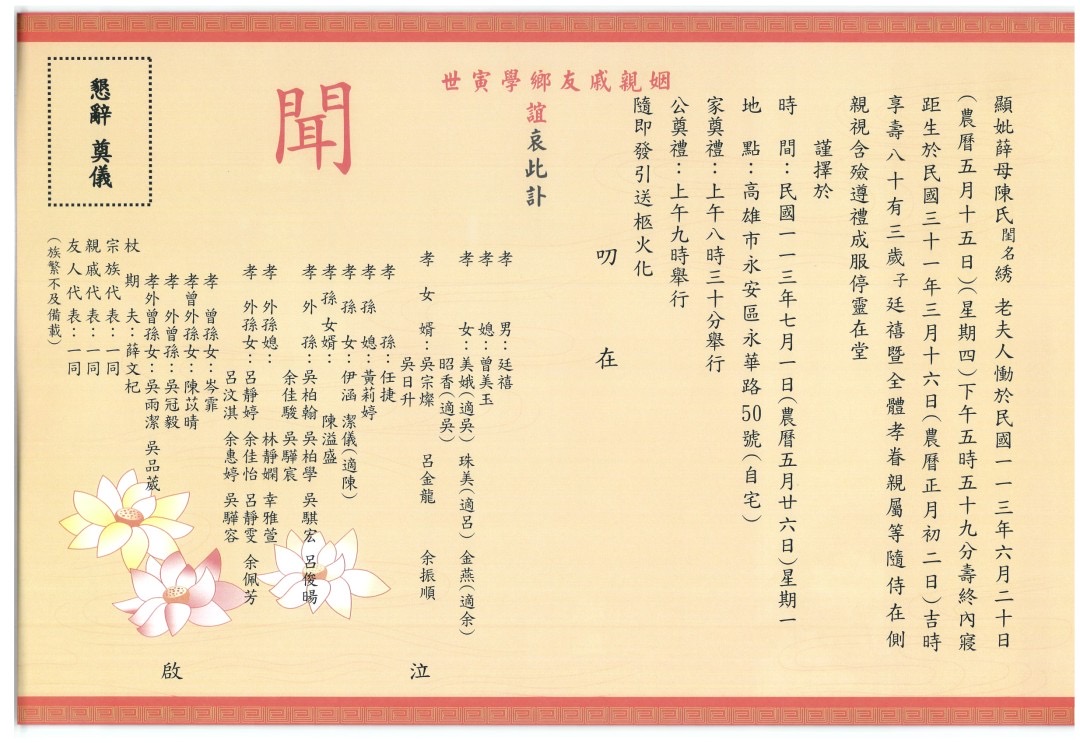 顯妣薛母陳氏閨名綉 老夫人慟於民國一一三年六月二十日
(農曆五月十五日)(星期四)下午五時五十九分壽終內寢
距生於民國三十一年三月十六日(農曆正月初二日)吉時
享壽八十有三歲子廷禧暨全體孝眷親屬等隨侍在側
親視含殮遵禮成服停靈在堂
謹擇於
時 間:民國一一三年七月一日(農曆五月廿六日)星期一
地 點:高雄市永安區永華路50號(自宅)
家奠禮:上午八時三十分舉行
公奠禮:上午九時舉行
隨即發引送柩火化
叨 在
姻親戚友鄉學寅世
誼哀此訃
聞
孝 男:廷禧
孝 媳:曾美玉
孝 女:美娥(適吳) 珠美(適呂) 金燕(適余)
昭香(適吳)
孝 女 婿:吳宗燦 呂金龍 余振順
吳日升
孝 孫:任捷
孝 孫 媳:黃莉婷
孝 孫 女:伊涵 潔儀(適陳)
孝 孫 女 婿: 陳溢盛
孝 外 孫:吳柏翰 吳柏學 吳騏宏 呂俊暘
余佳駿 吳驊宸
孝 外孫媳: 林靜嫻 幸雅萱
孝 外孫女:呂靜婷 余佳怡 呂靜雯 余佩芳
呂汶淇 余惠婷 吳驊容
孝 曾孫女:岑霏
孝曾外孫女:陳苡晴
孝 外曾孫:吳冠毅
孝外曾孫女:吳雨潔 吳品葳
杖 期 夫:薛文杞
宗族代表:一同
親戚代表:一同
友人代表:一同
(族繁不及備載)
泣 啟
懇辭 奠儀